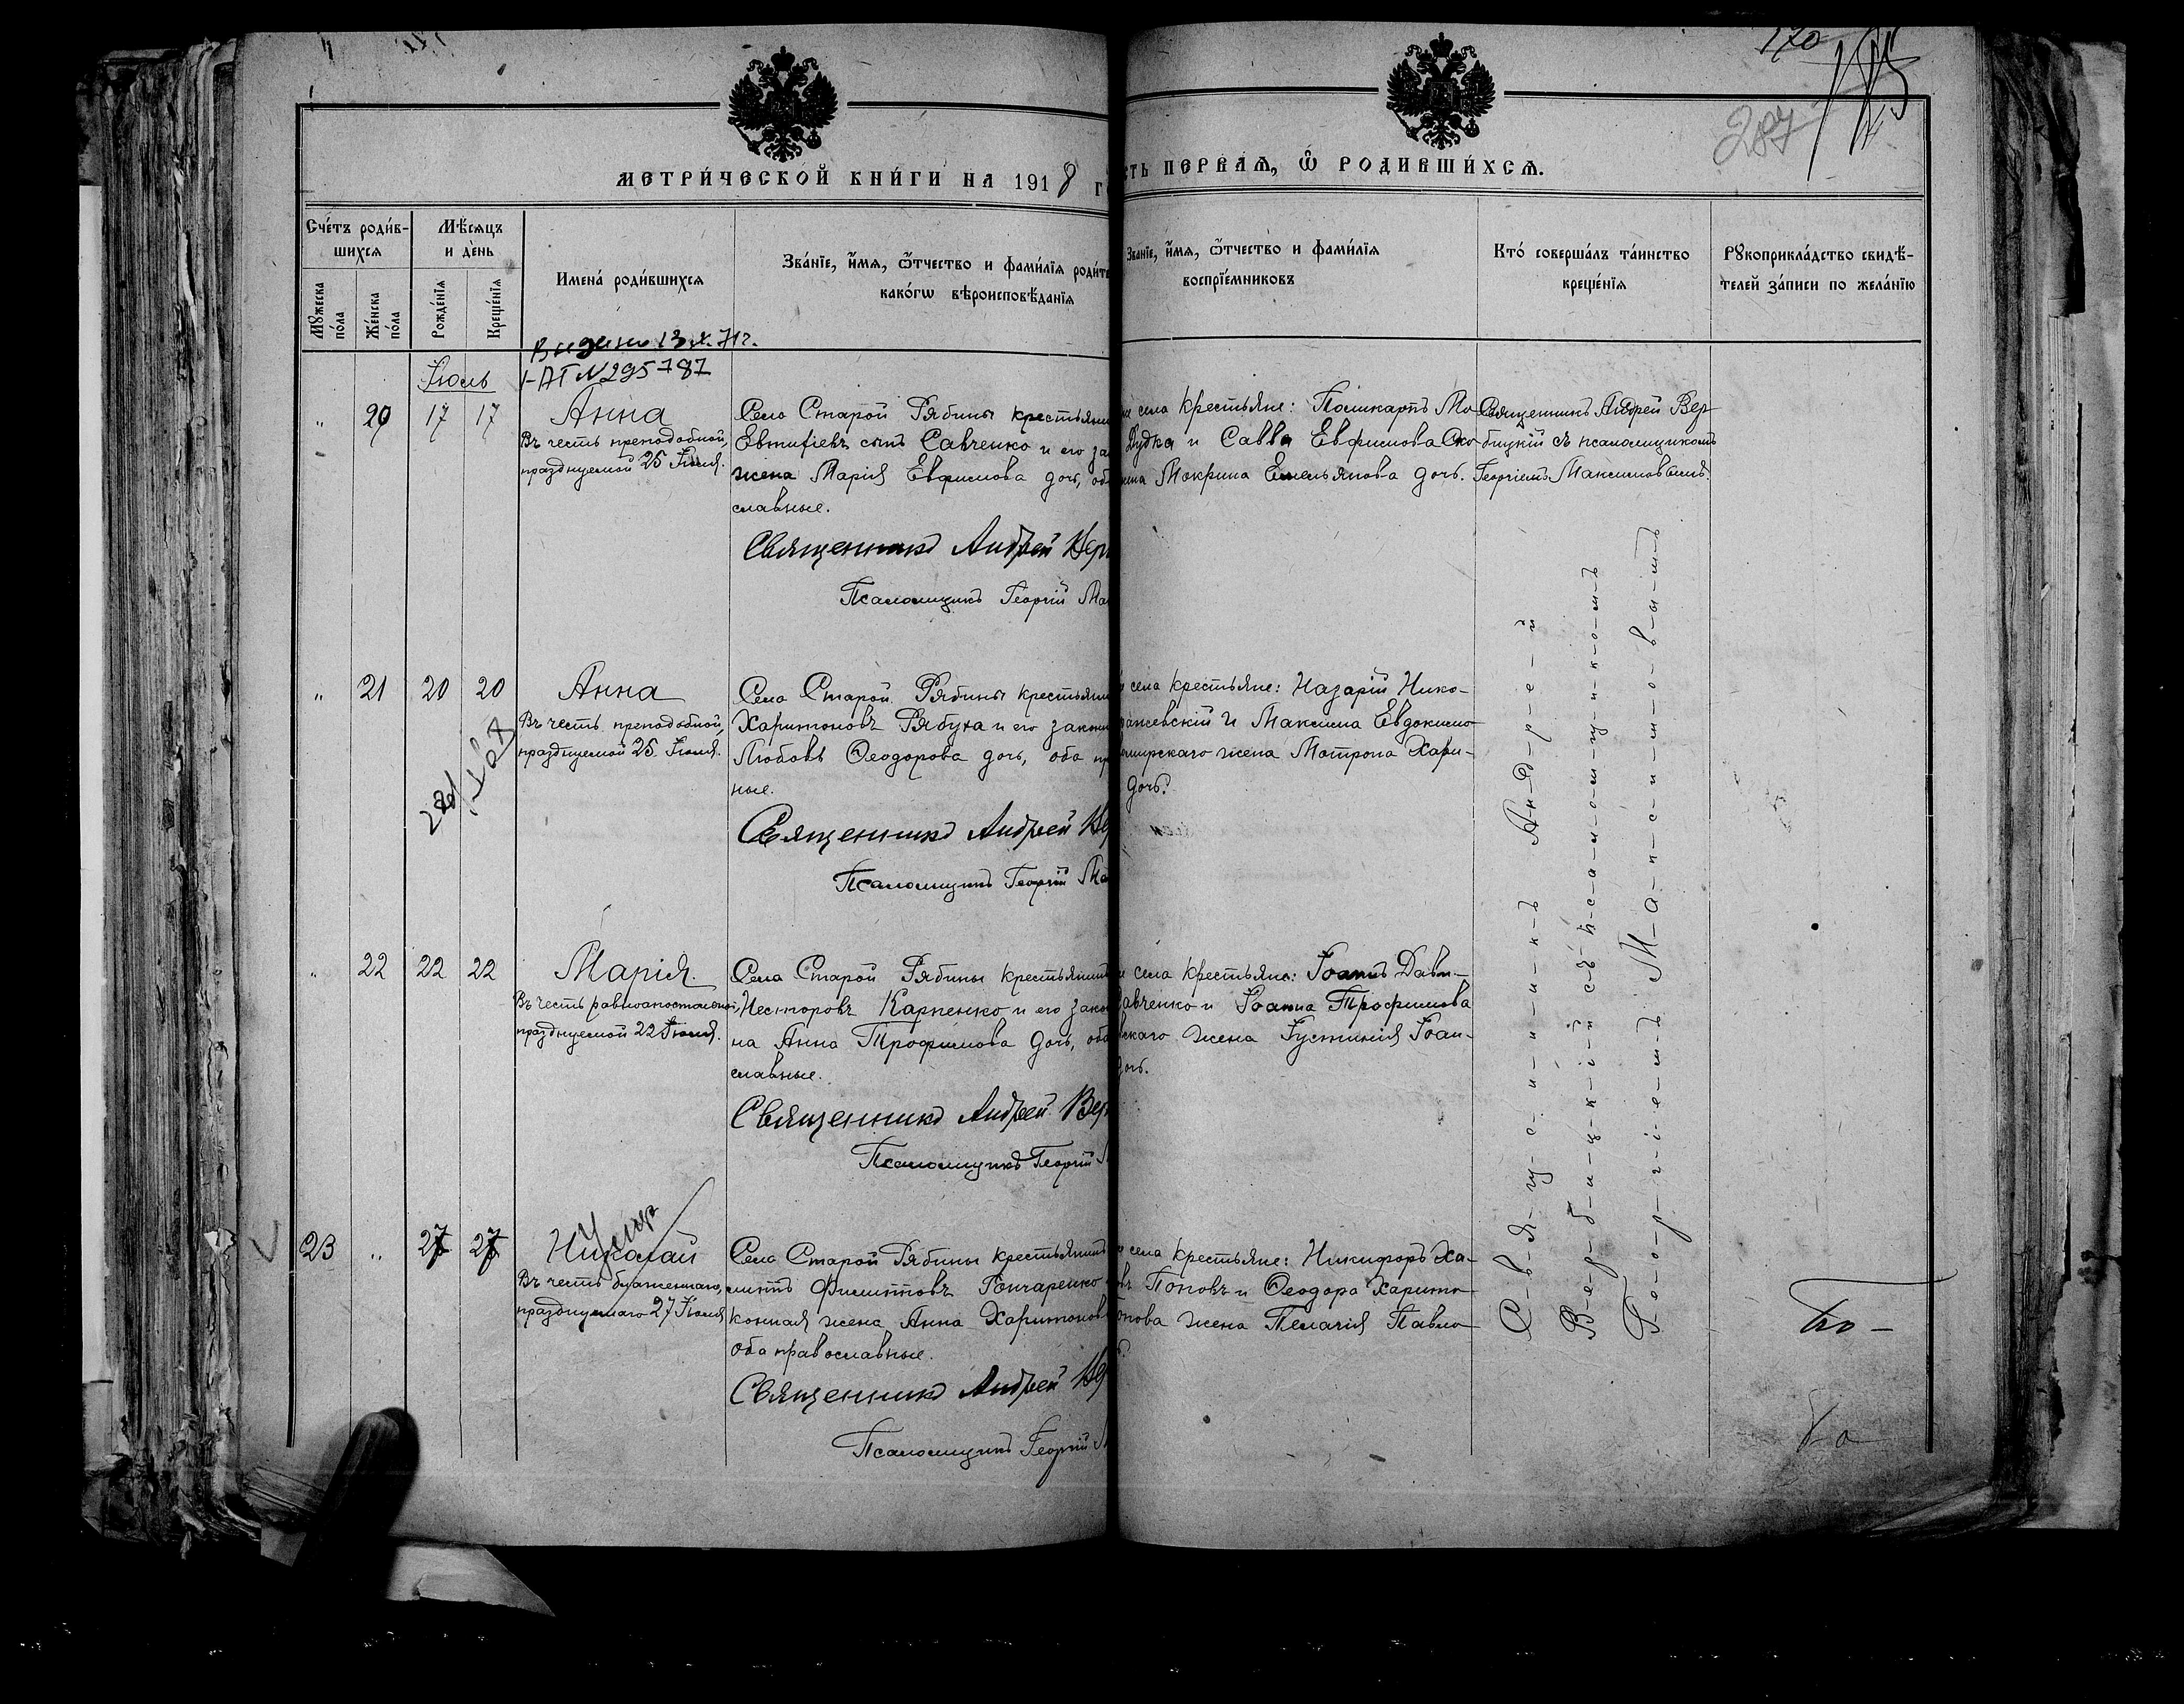 170
287
МЕТРИ́ЧЕСКОЙ КНИ́ГИ НА 1918
ПЕРВАѦ, Ѿ РОДИВШИ́ХСѦ.
Сче́тъ роди́в-
шихся
Мѣ́сяцъ
и де́нь
Мꙋжеска по́ла
Же́нска по́ла
Рожде́нїя
Креще́нїя
Имена́ роди́вшихся
Зва́нїе, и́мя, ѻ́тчество и фами́лїя
како́гѡ вѣроисповѣ́данїя
Зва́нїе, и́мя, ѻ́тчество и фами́лїя
воспрїе́мниковъ
Кто́ соверша́лъ та́инство
креще́нїя
Рꙋкоприкла́дство свидѣ́-
телей за́писи по жела́нїю
I-АГ №295787
Іюль
" 20 17 17 Анна
Въ честь преподобной,
празднуемой 25 Іюля.
Села Старой Рябины крестьянин
Евтифіевъ сынъ Савченко и его за
жена Марія Евфимова дочь, об
славные.
Священникъ Андрей Вер
Псаломщикъ Георгій Ма
села крестьяне: Поликарпъ Мо-
Дудка и Савва Евфимова Ско-
Мокрина Емельянова дочь.
Священникъ Андрей Вер-
бицкій съ псаломщикомъ
Георгіемъ Максимовымъ.
" 21 20 20 Анна
Въ честь преподобной,
празднуемой 25 Іюля.
Села Старой Рябины крестьянин
Харитоновъ Рябуха и его законн
Любовь Ѳеодорова дочь, оба пр
ные.
Священникъ Андрей Ве
Псаломщикъ Георгій Ма
села крестьяне: Назарій Нико-
и Максима Евдокимо-
жена Матрона Хари-
дочь.
" 22 22 22 Марія
Въ честь равноапостольной,
празднуемой 22 Іюля.
Села Старой Рябины крестьянинъ
Несторовъ Карпенко и его зако
на Анна Трофимова дочь, оба
славные.
Священникъ Андрей Вер
Псаломщикъ Георгій
села крестьяне: Іоаннъ Дави-
Савченко и Іоанна Трофимова
жена Іустинія Іоан-
дочь.
23 " 27 27 Николай
Умер
Въ честь блаженнаго,
празднуемаго 27 Іюля
Села Старой Рябины крестьянинъ
Филиптовъ Гончаренко
конная жена Анна Харитонов
оба православные.
Священникъ Андрей Ве
Псаломщикъ Георгій
села крестьяне: Никифоръ Ха-
Поповъ и Ѳеодора Харито-
жена Пелагія Павло-
С-в-я-щ-е-н-н-и-к-ъ А-н-д-р-е-й
В-е-р-б-и-ц-к-і-й съ п-с-а-л-о-м-щ-и-к-о-м-ъ
Г-е-о-р-г-і-е-м-ъ М-а-к-с-и-м-о-в-ы-м-ъ